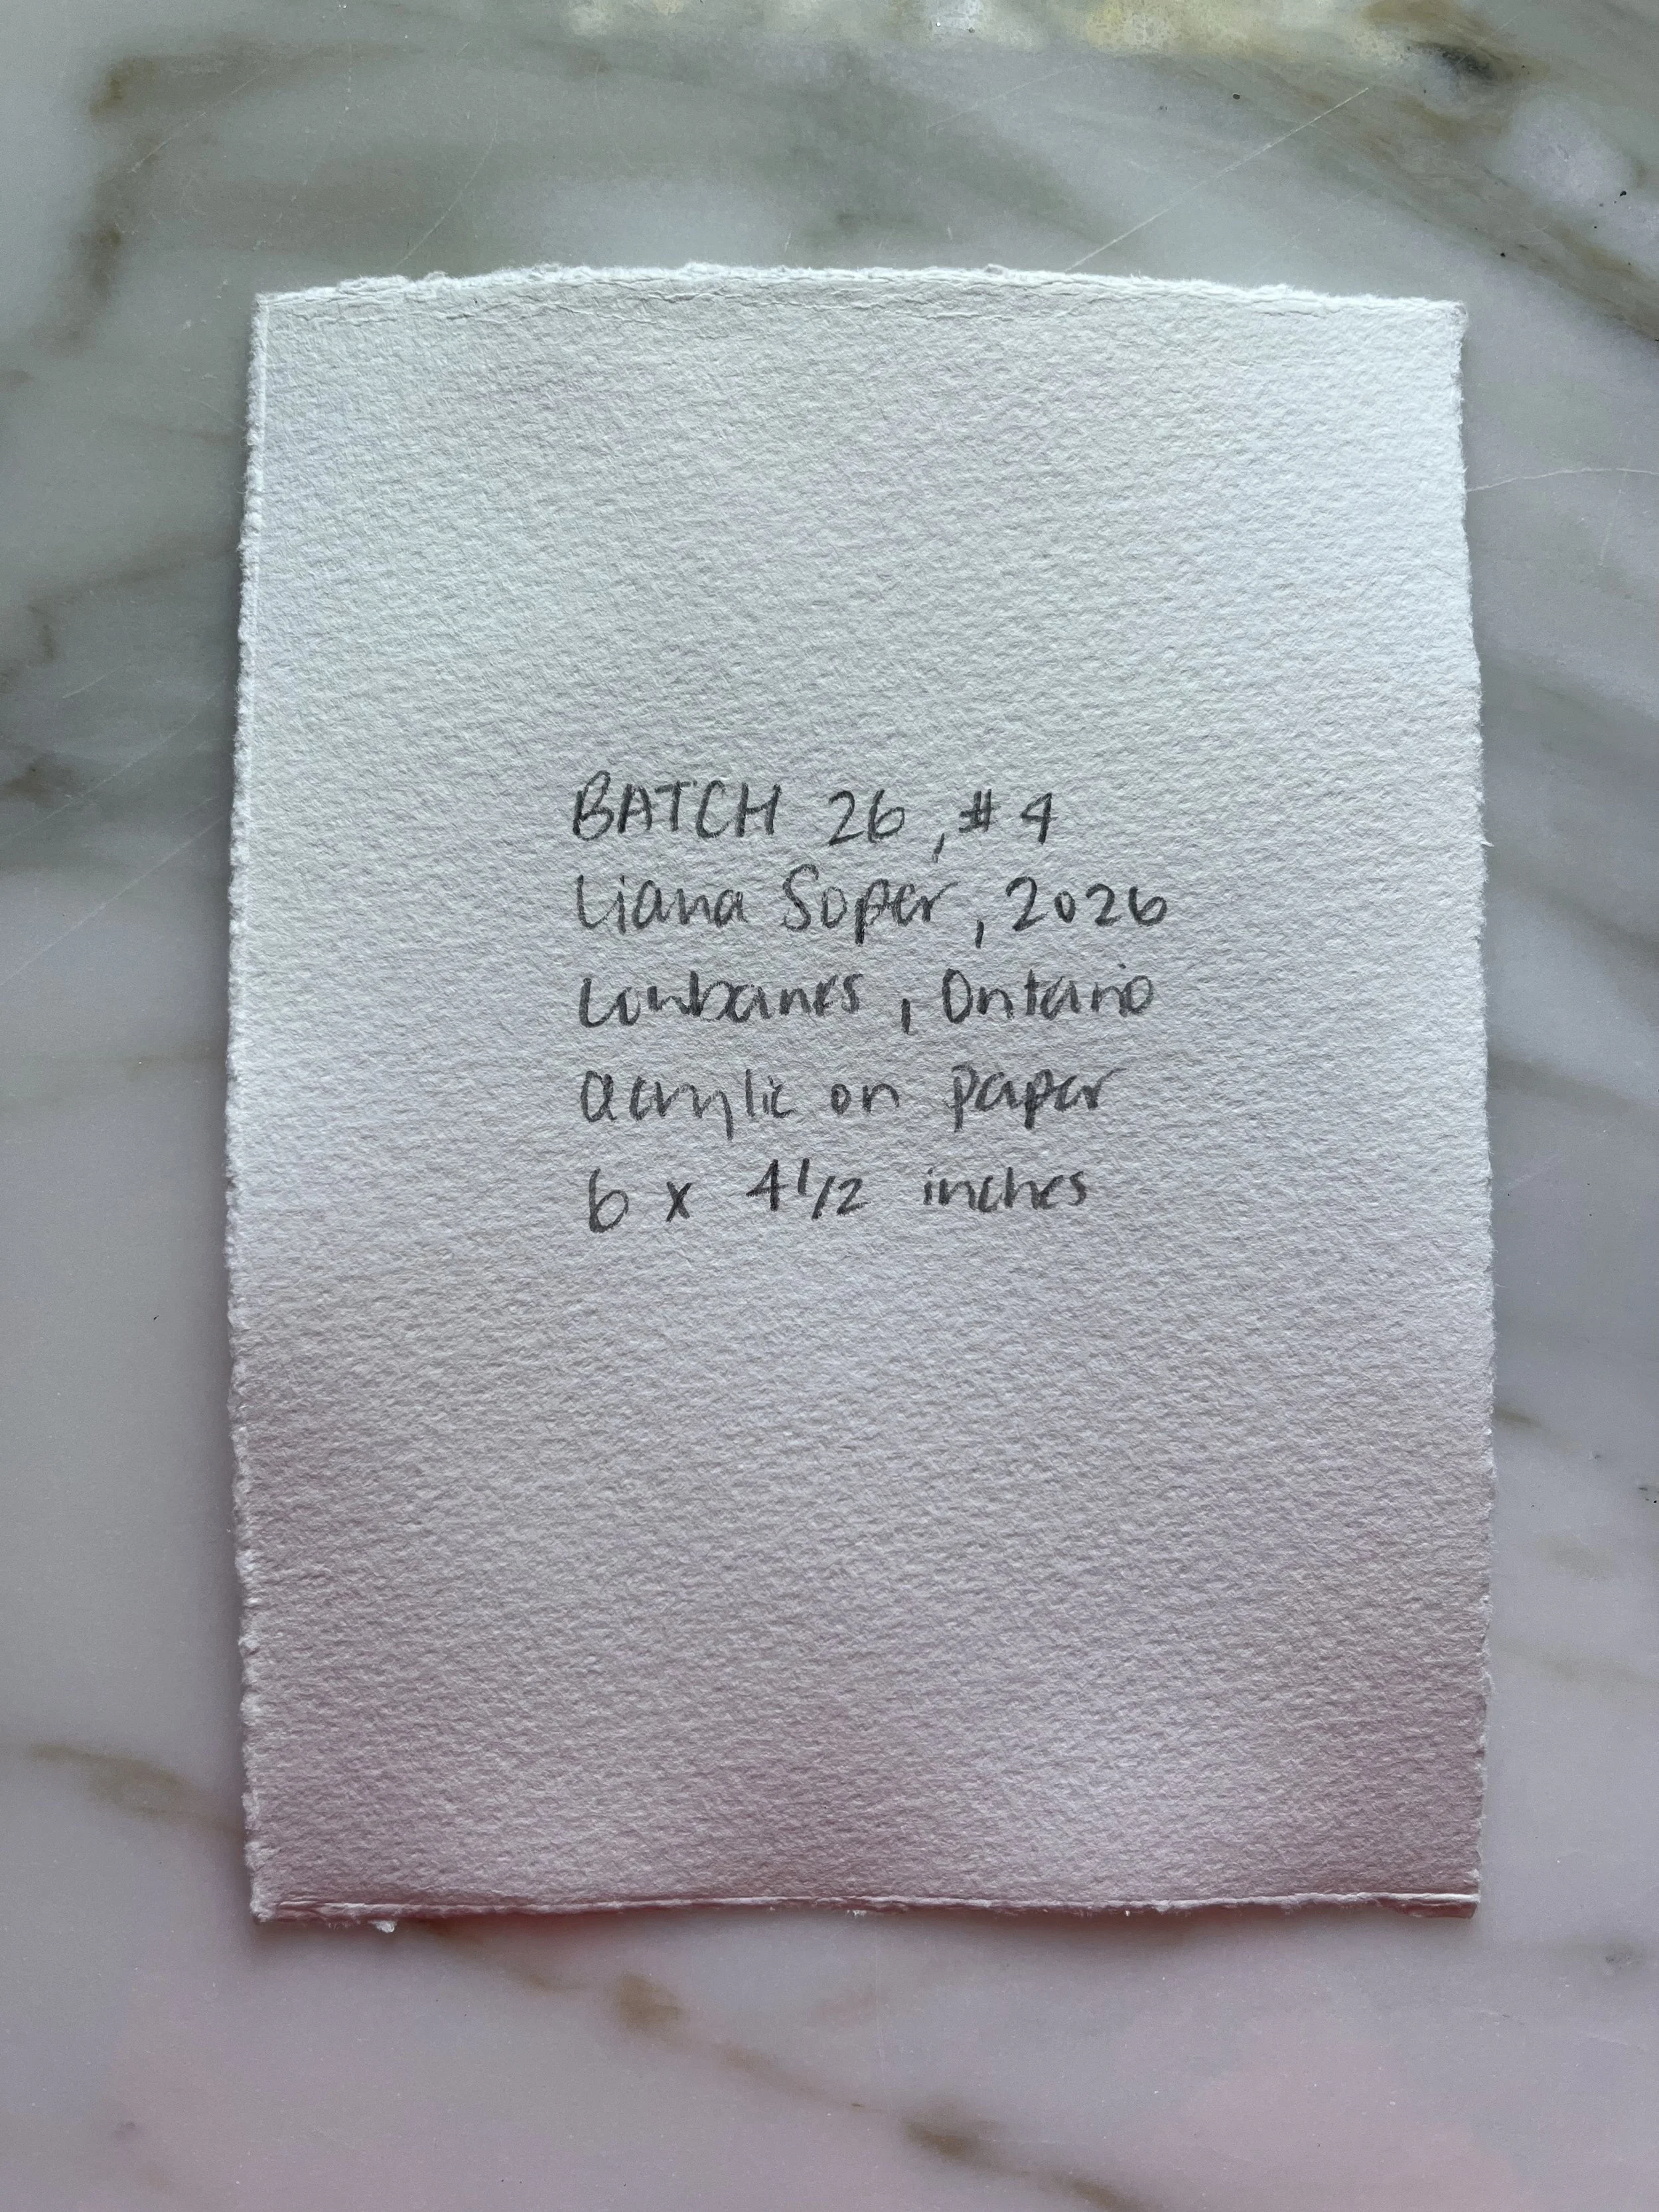 BATCH 26, #4
Liana Soper, 2026
Lombanes, Ontario
acrylic on paper
6 x 4 1/2 inches